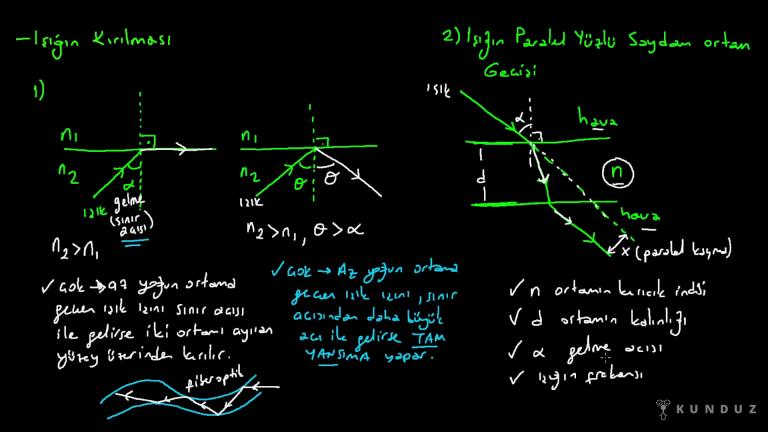 -Işığın Kırılması
1)
n1
n2
α
ışık
gelme
(sınır
açısı)
n2>n1
✓ Çok → az yoğun ortama
geçen ışık ışını sınır açısı
ile gelirse iki ortamı ayıran
yüzey üzerinden kırılır.
fiberoptik
n1
n2
θ θ
ışık
n2>n1, θ>α
✓ Çok → Az yoğun ortama
geçen ışık ışını, sınır
açısından daha büyük
açı ile gelirse TAM
YANSIMA yapar.
2) Işığın Paralel Yüzlü Saydam ortam
Geçişi
ışık
α
hava
d
n
hava
x (paralel kayma)
✓ n ortamın kırıcılık indisi
✓ d ortamın kalınlığı
✓ α gelme açısı
✓ ışığın frekansı
KUNDUZ